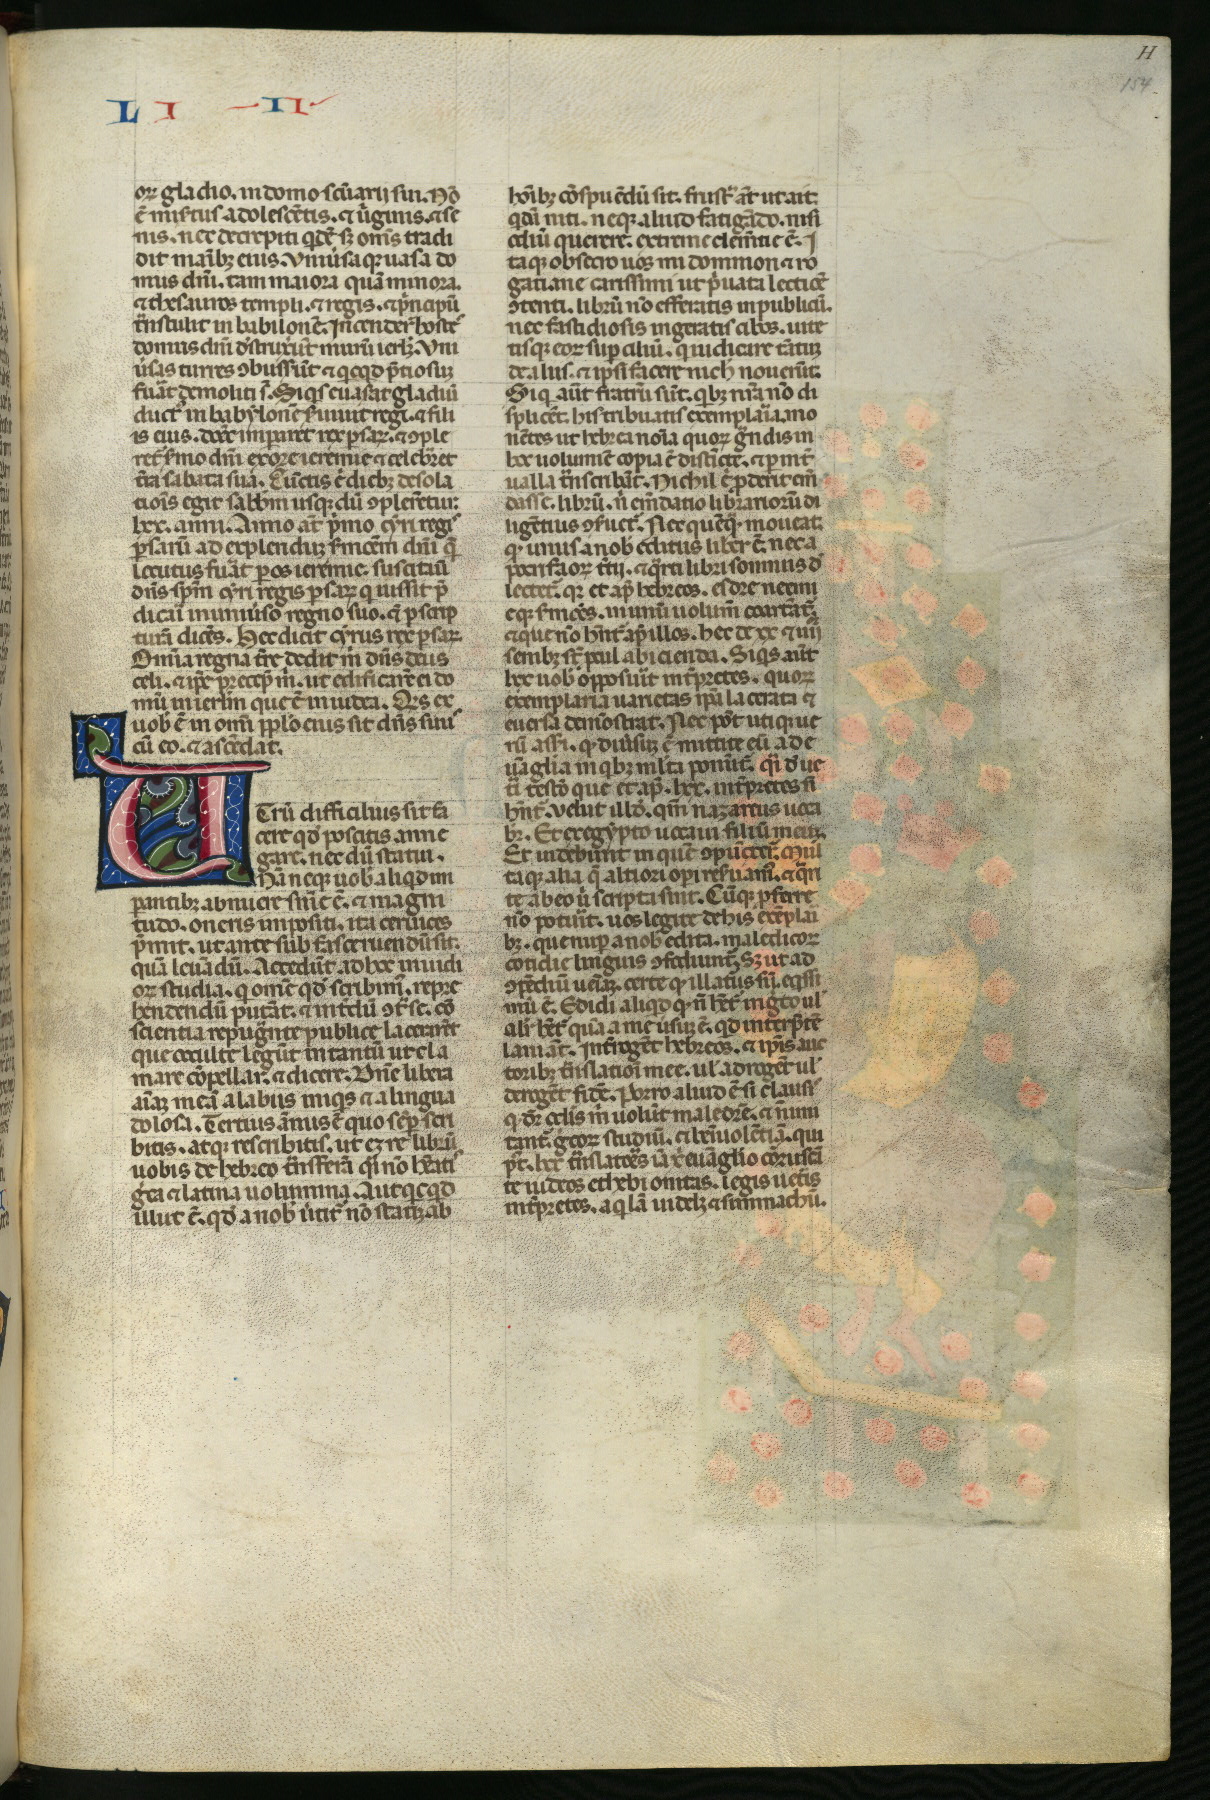 H
154
LI II
or̄ gladio. in domo sc̄uarij sui. Nō
ē misertus adolescētis. ⁊ ūginis. ⁊ se
nis. nec decrepiti qdē sꝫ om̄s tradi
dit manibꝫ eius. Vniūsaqꝫ uasa do
mus dn̄i. tam maiora quā minora.
⁊ thesauros templi. ⁊ regis. ⁊ p̄ncipū
t̄nstulit in babilonē. Incender̄t hostes
domū dn̄i dstruxer̄t murū ierl̄m. Vni
ūsas turres ꝯbusser̄t ⁊ qcqd p̄tiosuꝫ
fuāt demoliti s̄. Siqs euasat gladiū
duct' in babylonē s̄uiuit regi. ⁊ fili
is eius. donec impar̄et rex psaꝝ. ⁊ ꝯple
ret' s̄mo dn̄i ex ore ieremie ⁊ celebr̄et
t̄ra sabata sua. Cūctis ē diebꝫ desola
tiois egit sabb̄m usqꝫ dū ꝯpler̄etur:
lxx. anni. Anno aūt p̄mo cyri regis
psarū ad explenduꝫ s̄monem dn̄i quē
locutus fuāt p os ieremie. suscitauit
dn̄s sp̄m cyri regis psaꝝ q iussit p̄
dicari in uniūso regno suo. ⁊ p scrip
turā dicēs. Hec dicit cyrus rex psaꝝ.
Omnia regna t̄re dedit m̄ dn̄s deus
celi. ⁊ ip̄e precep̄ m̄. ut edificare ei do
mū in ierl̄m que ē in iudea. Q̄s ex
uob ē in om̄i pp̄lo eius sit dn̄s suus
cū eo. ⁊ ascēdat.
Utrū difficilius sit fa
cere qd poscitis an ne
gare. nec dū statui.
Nā neqꝫ uob aliqd im
pantibꝫ abnuere sn̄ie ē. ⁊ magni
tudo. oneris impositi. ita ceruices
p̄mit. ut ante sub fasce ruendū sit.
quā leuādū. Accedūt ad hec inuidi
oꝝ studia. q om̄e qd scribim'. repre
hendendū putāt. ⁊ int̄dū ꝯt se. cō
scientia repugn̄te publice lacerant
que occulte legūt in tantū ut cla
mare cōpellar. ⁊ dicere. Dn̄e libera
aīaꝫ meā a labiis iniqs ⁊ a lingua
dolosa. Tertius annus ē quo sep scri
bitis. atqꝫ rescribitis. ut ezre librū
uobis de hebreo t̄nsferā qi nō hēatis
greca ⁊ latina uolumina. Aut qcqd
illut ē. qd a nob ūtit' nō statiꝫ ab
hoib̄ꝫ cōspuēdū sit. frustra āt ut ait.
qdā niti. neqꝫ aliud fatigādo. nisi
odiū querere. extreme demētie ē. I
taqꝫ obsecro uos mi domnion ⁊ ro
gatiane carissimi ut p̄uata lectione
ꝯtenti. librū nō efferatis in publicū.
nec fastidiosis ingeratis cibos. uite
tisqꝫ eoꝝ supciliū. qui dicare tantū
de aliis. ⁊ ipsi facere nich nouerūt.
Siq aūt fratrū sūt. qbꝫ nr̄a nō di
splicēt. his tribuatis exemplaria. mo
nētes ut hebrea noīa quoꝝ grandis in
hoc uolumine copia ē distīcte. ⁊ p int
ualla t̄nscribāt. Nichil ē proderit em̄
dasse. librū. n̄ em̄datio librarioꝝ di
ligētius ꝯseruet'. Nec quēqꝫ moueat.
qꝫ unus a nob editus liber ē. nec a
pocrifaoꝝ tertij. ⁊ qrti libri somniis d
lectet'. qꝫ et ap̄ hebreos. esdre neemi
eqꝫ s̄mones. in unū uolumē coartāt'.
⁊ que nō hn̄t' ap̄ illos. nec de xx ⁊ iiij
senibꝫ st̄ pcul abicienda. Siqs aūt
lxx uob opposuit int̄pretes. quoꝝ
exemplaria uarietas ipsa lacerata ⁊
euersa demōstrat. Nec pōt utiqꝫ ue
rū asseri. qd diūsuꝫ ē mittite eū ad e
uāglia in qbꝫ multa ponūt'. q̄si d ue
ti testō que et ap̄. lxx. int̄pretes nō
hn̄t'. uelut illd. qm̄ nazareus uoca
bit'. Et ex egypto uocaui filiū meū.
Et uidebunt in quē ꝯpūxerūt. Mul
taqꝫ alia q̄ altiori opi reseruam'. ⁊ qri
te ab eo ubi scripta sint. Cūqꝫ pferre
nō potuit. uos legite de his exēplari
bꝫ. que nup a nob edita. maledicoꝝ
cotidie linguis ꝯfodiunt'. Sꝫ ut ad
ꝯpēdiū ueniaꝫ. certe qꝫ illatūs sū. eqssi
mū ē. Edidi aliqd qꝫ n̄ het' in greco ul'
alit' het' quā a me ūsuꝫ ē. qd int̄pretē
laniāt. Int̄rogēt hebreos. ⁊ ipis auc
toribꝫ t̄nslationi mee. ul' adrogēt ul'
derogēt fidē. Porro aliud ē si clausis
q dr̄ oclis m̄ uolūt maledicere. ⁊ n̄ imi
tant' grecoꝝ studiū. ⁊ beniuolētiā. qui
pt. lxx t̄nslatores iā xp̄i euāglio coruscā
te iudeos et hebionitas. legis uetis
int̄pretes. aqlā uidelꝫ ⁊ simmachū.